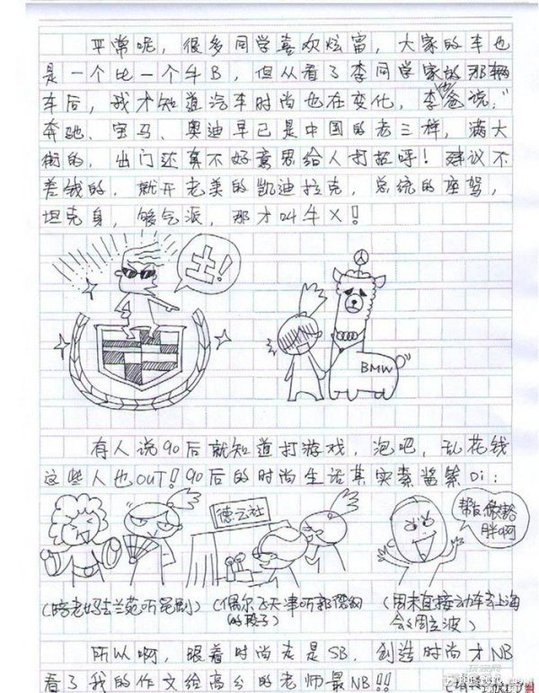 平常呢，很多同学喜欢炫富，大家的车也
是一个比一个牛B，但从看了李同学家的那辆
车后，我才知道汽车时尚也在变化，李爸说，"
奔驰、宝马、奥迪早已是中国的老三样，满大
街的，出门还真不好意思给人打招呼！建议不
差钱的，就开老美的凯迪拉克，总统的座驾，
坦克身，够气派，那才叫牛X！
土！
BMW
有人说90后就知道打游戏，泡吧，乱花钱
这些人也OUT！90后的时尚生活其实素酱紫Di：
德云社
帮瓦
胖啊
(陪老妈去兰苑听昆剧)
(偶尔飞天津听郭德纲
的段子)
(周末直接动车去上海
会周立波)
所以啊，跟着时尚走是SB，创造时尚才NB
看了我的作文给高分的老师最NB!!